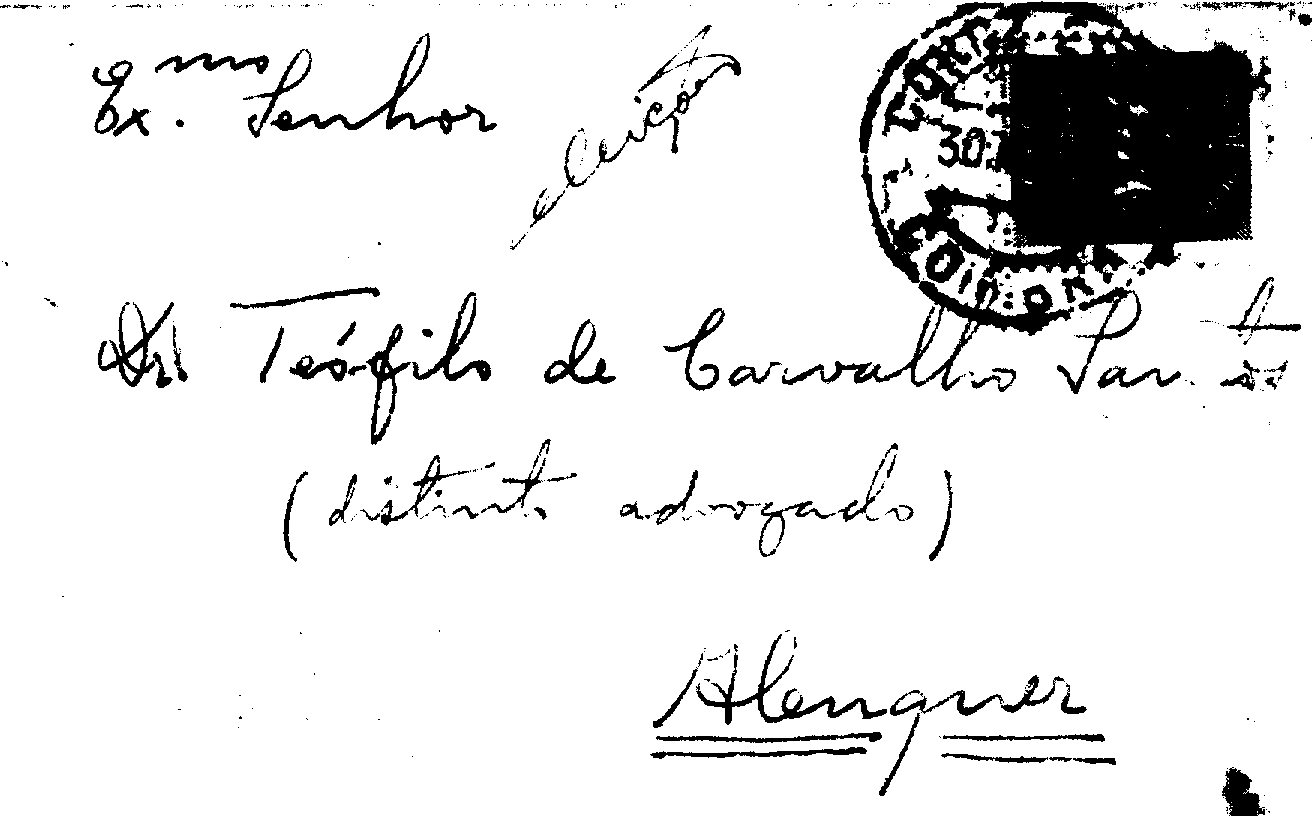 Ex.mo Senhor
eleições
Dr. Teófilo de Carvalho Santos
(distinto advogado)
Alenquer
30